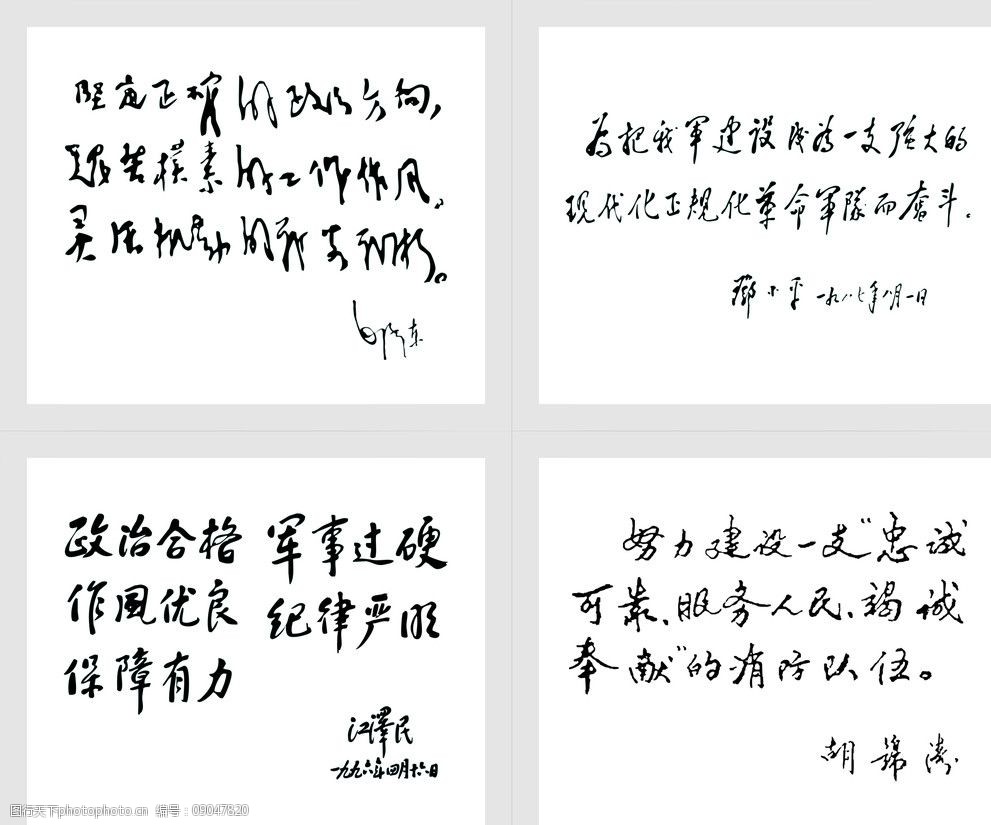 坚定正确的政治方向，
艰苦朴素的工作作风。
灵活机动的战略战术。
毛泽东
为把我军建设成为一支强大的
现代化正规化革命军队而奋斗。
鄧小平 一九八七年八月一日
政治合格 军事过硬
作风优良 纪律严明
保障有力
江澤民
一九九六年四月十六日
努力建设一支“忠诚
可靠、服务人民、竭诚
奉献”的消防队伍。
胡锦涛
图行天下photophoto.cn 编号：09047820